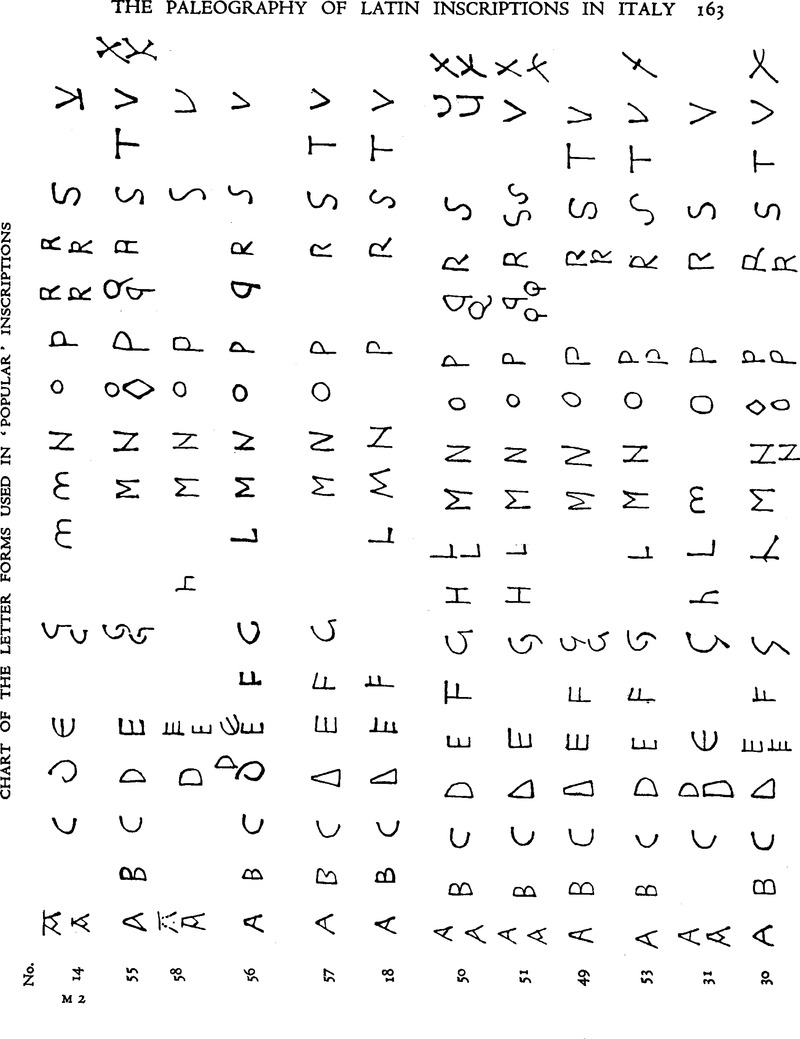 THE PALEOGRAPHY OF LATIN INSCRIPTIONS IN ITALY 163
CHART OF THE LETTER FORMS USED IN 'POPULAR' INSCRIPTIONS
No.
14 A A C D E G G M M N O P R R R R S V
55 A B C D E G G M N O O P Q q R S T V X X
58 A A D E E h M N O P S V
56 A B C D D E E F G L M N O P q R S V
57 A B C D E F G M N O P R S T V
18 A B C D E F L M N P R S T V
50 A A B C D E F G H L L M N O P q Q R S V V X X
51 A A B C D E G H L M N O P q q q R S S V X X
49 A B C D E F G G M N O P R R S T V
53 A B C D E F G L M N O P P R S T V X
31 A A C D D E G h L M O P R S V
30 A B C D E E F G L M N N O O P P R R S T V X
M 2